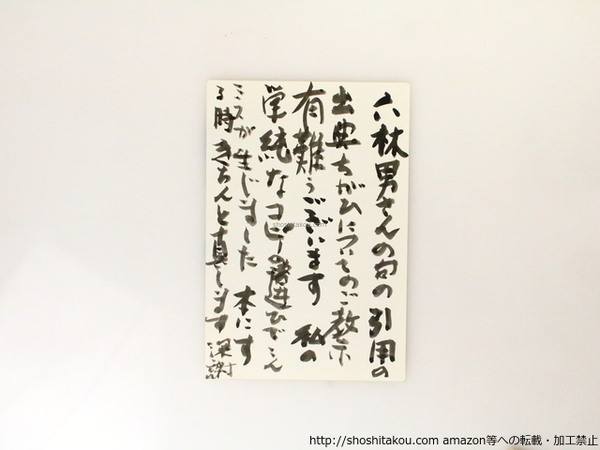 六林男さんの句の引用の
出典ちがひについてのご教示
有難うございます 私の
単純なコピーの勘違ひでこん
ミスが生じました 本にす
る時 きちんと直します 深謝
shoshitakou.com
http://shoshitakou.com amazon等への転載・加工禁止